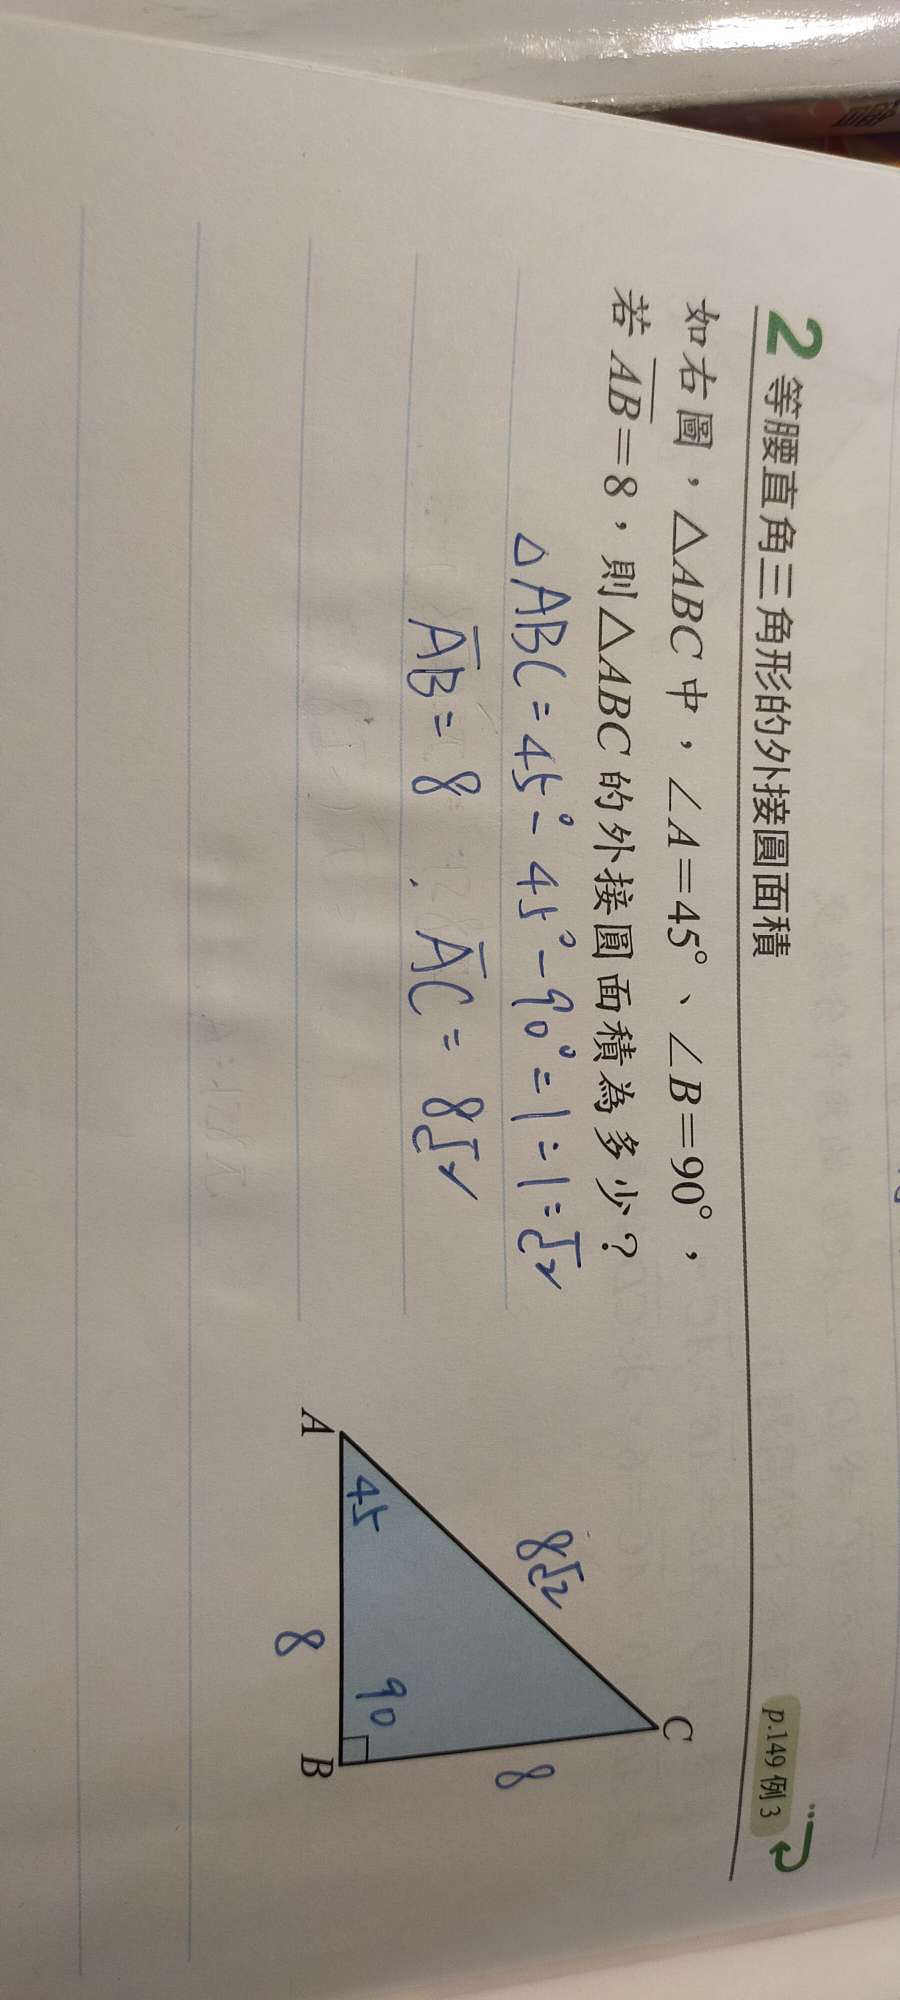 2 等腰直角三角形的外接圓面積
p.149 例 3
如右圖，△ABC中，∠A＝45°、∠B＝90°，
若 AB＝8，則△ABC 的外接圓面積為多少？
△ABC = 45° - 45° - 90° = 1 : 1 : √2
AB = 8 AC = 8√2
C
8√2
8
45
90
A
B
8